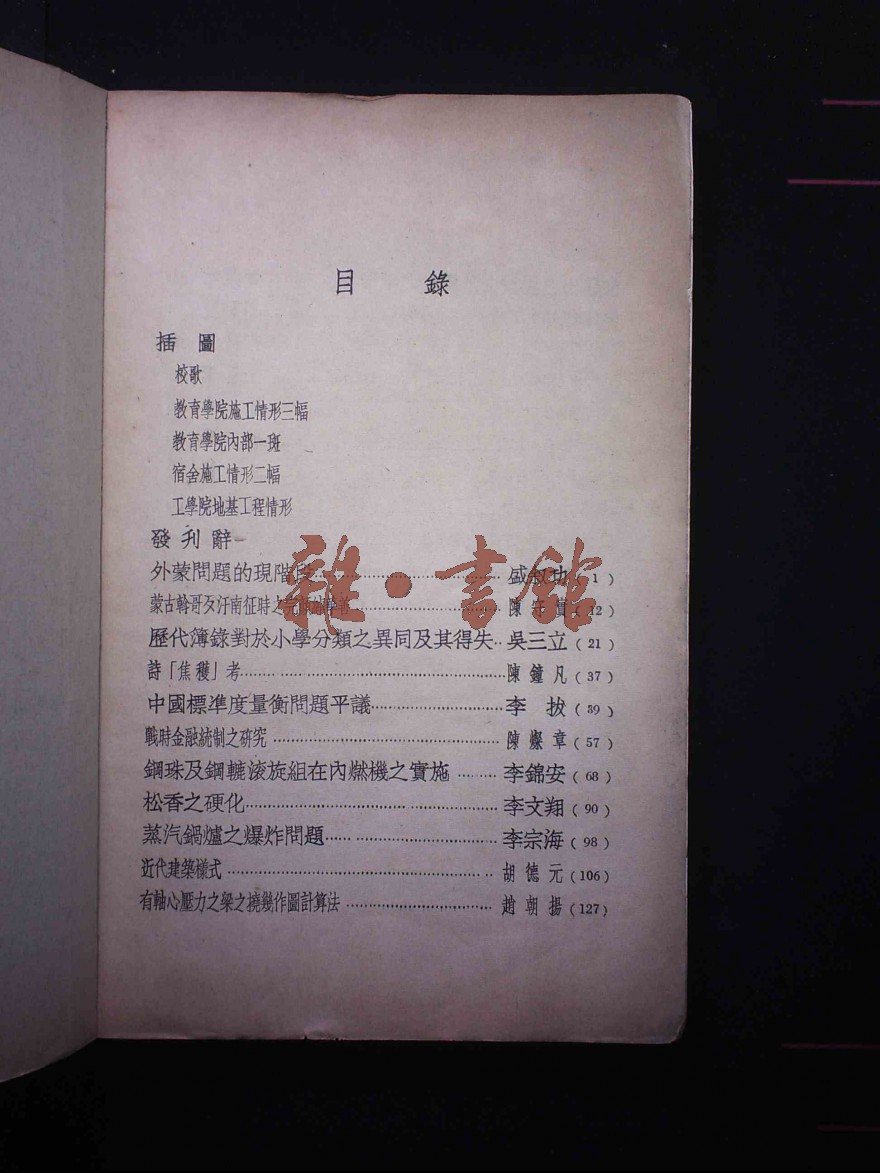 目 錄
插 圖
校歌
教育學院施工情形三幅
教育學院內部一斑
宿舍施工情形二幅
工學院地基工程情形
發刋辭
外蒙問題的現階段……盛叙功(1)
蒙古斡哥歹汗南征時之……陳(12)
歷代簿錄對於小學分類之異同及其得失..吳三立(21)
詩「焦穫」考……陳鐘凡(37)
中國標準度量衡問題平議……李 拔(39)
戰時金融統制之硏究……陳燦章(57)
鋼珠及鋼轆滚旋組在內燃機之實施……李錦安(68)
松香之硬化……李文翔(90)
蒸汽鍋爐之爆炸問題……李宗海(98)
近代建築樣式……胡德元(106)
有軸心壓力之梁之撓幾作圖計算法……趙朝揚(127)
雜·書館